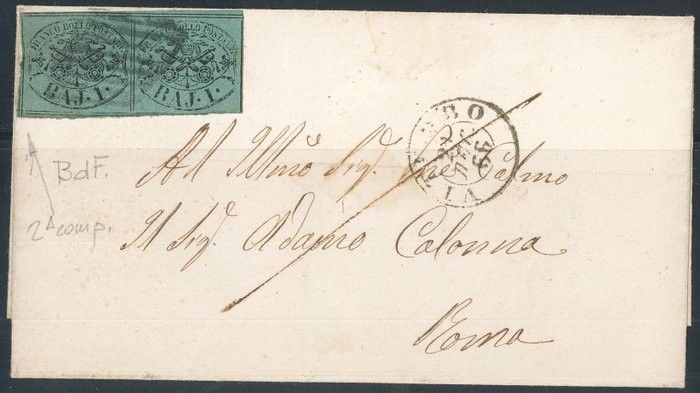 FRANCO BOLLO POSTALE FRANCO BOLLO POSTALE
BAJ. 1. BAJ. 1.
BdF.
2ª comp.
VITERBO
66
All Illmo Sig.
Il Sig. Adamo Colonna
Roma